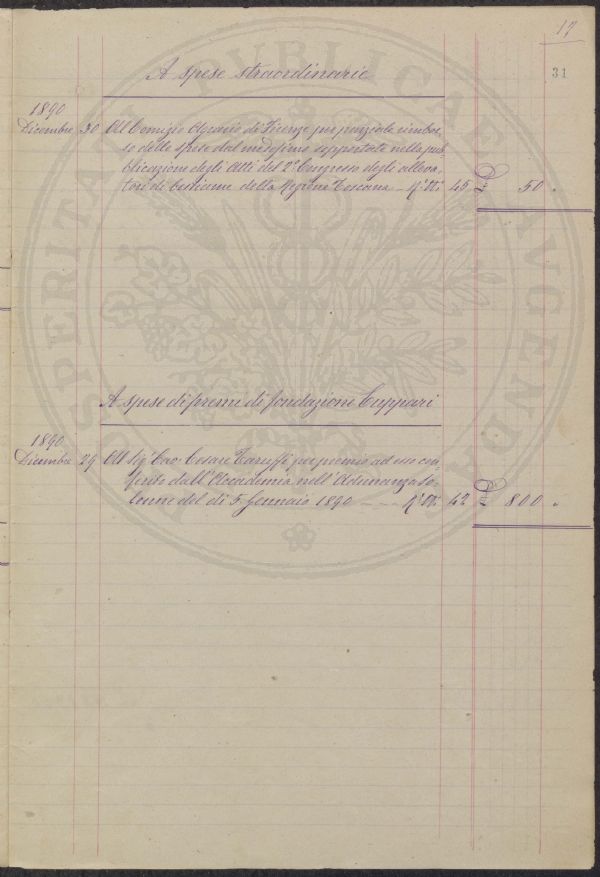 17
31
A spese straordinarie
1890
Dicembre 30 Al Comizio Agrario di Firenze per parziale rimbor-
so delle spese dal medesimo sopportate nella pub-
blicazione degli Atti del 2° Congresso degli alleva-
tori di bestiame della Regione Toscana - 45 £ 50 "
A spese di premi di fondazione Cuppari
1890
Dicembre 29 Al Sig. Cav. Cesare Taruffi per premio ad esso con-
ferito dall'Accademia nell'Adunanza so-
lenne del dì 5 Gennaio 1890 - - - 42 £ 800 "
PROSPERITATI PVBLICAE AVGENDAE